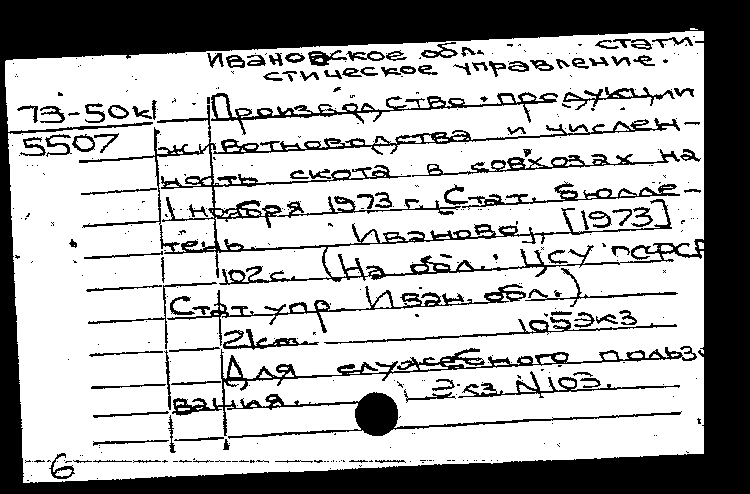 Ивановское обл. стати-
стическое управление.
73-50к Производство продукции
5507 животноводства и числен-
ность скота в совхозах на
1 ноября 1973 г. Стат. бюлле-
тень. Иваново, [1973].
102с. (На обл.: ЦСУ РСФСР
Стат. упр. Иван. обл.)
21см. 105экз.
Для служебного пользо
вания. Экз. N103.
6